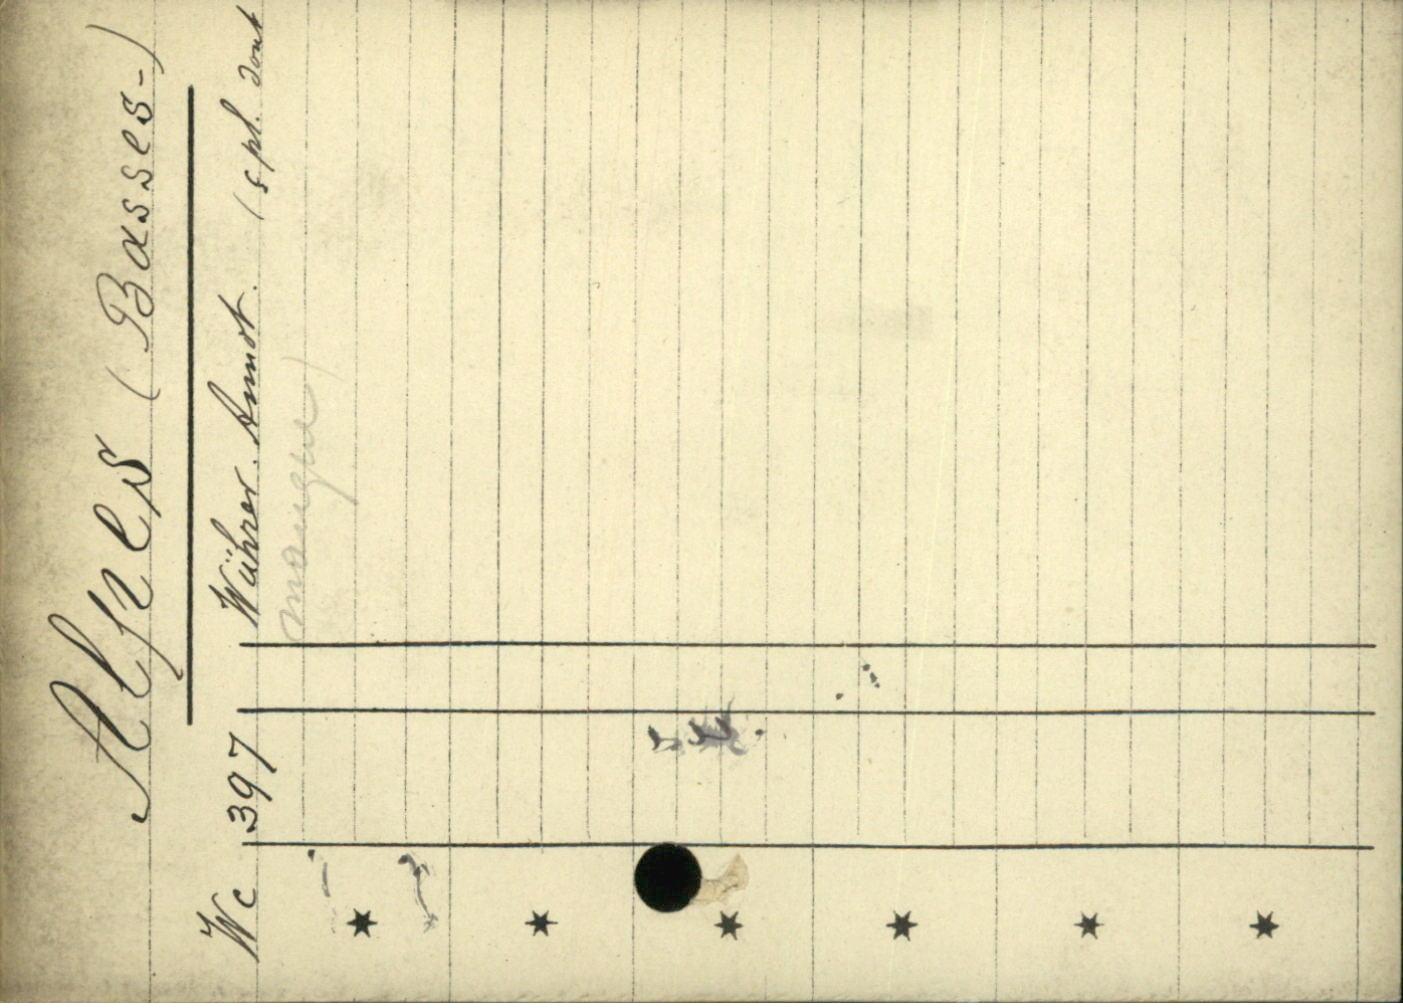 Alpes (Basses-)
Wc 397 Wührer. Annot. ( pl. dont
manque)